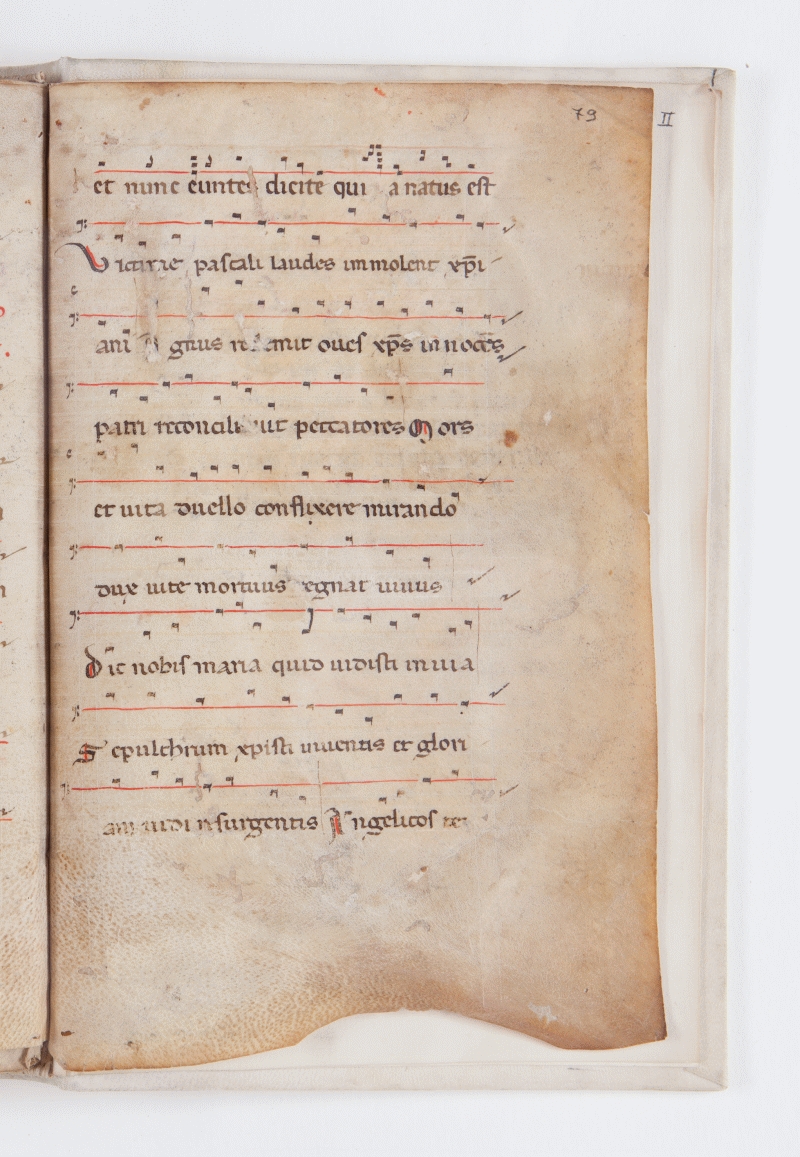 79
II
et nunc euntes dicite qui a natus est
Victime pascali laudes immolent xp̄i
ani Agnus redemit oues xp̄s innocēs
patri reconciliauit peccatores Mors
et uita duello conflixere mirando
dux uite mortuus regnat uiuus
Dic nobis maria quid uidisti in uia
Sepulchrum xpisti uiuentis et glori
am uidi resurgentis Angelicos te